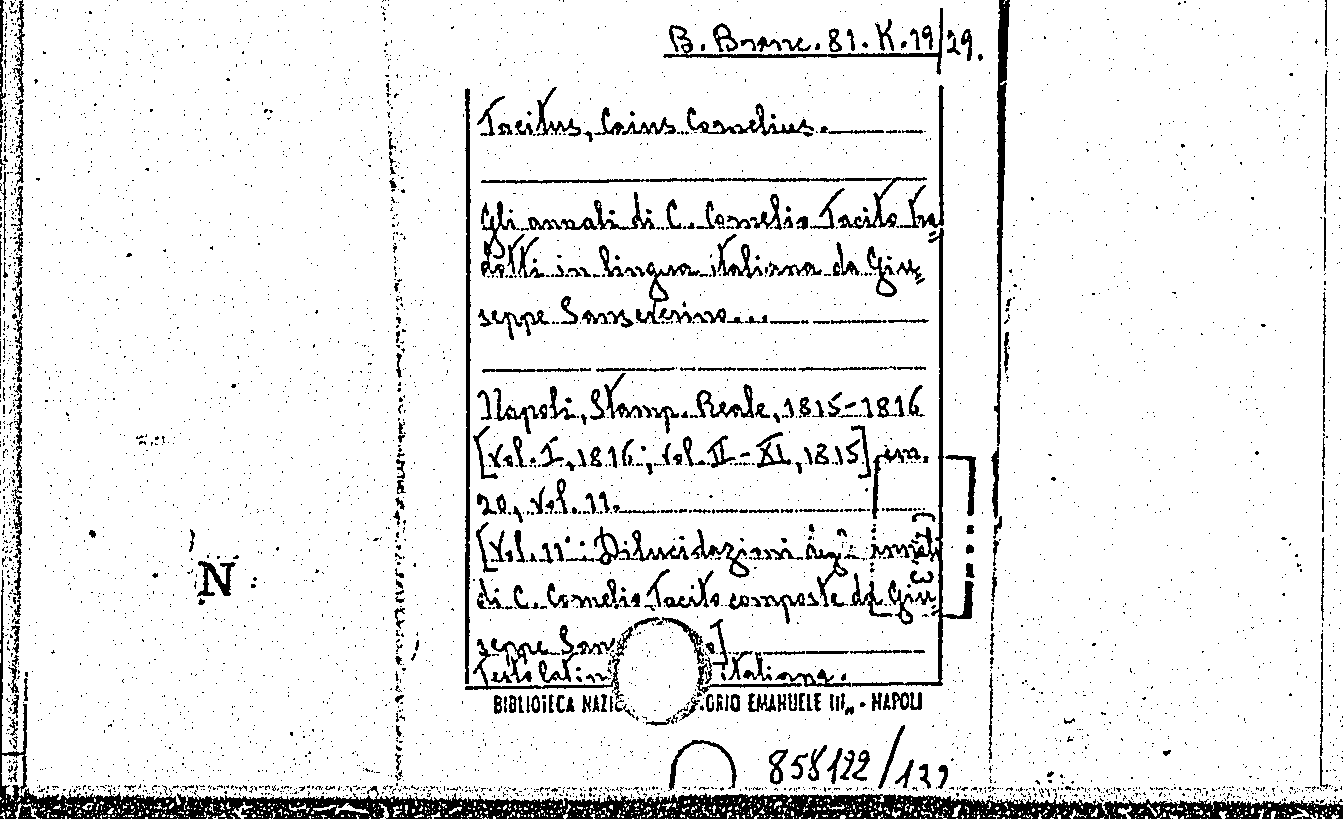 B. Branc. 81. K. 19/29.
Tacitus, Caius Cornelius.
Gli annali di C. Cornelio Tacito tra=
dotti in lingua italiana da Giu=
seppe Sanseverino...
Napoli, Stamp. Reale, 1815-1816
[Vol. I, 1816; vol. II-XI, 1815] in.
20, vol. 11.
[Vol. 11°: Dilucidazioni degl' annali
di C. Cornelio Tacito composte da Giu=
seppe San o]
Testo latin italiana.
N
BIBLIOTECA NAZI ORIO EMANUELE III„ - NAPOLI
858122/132